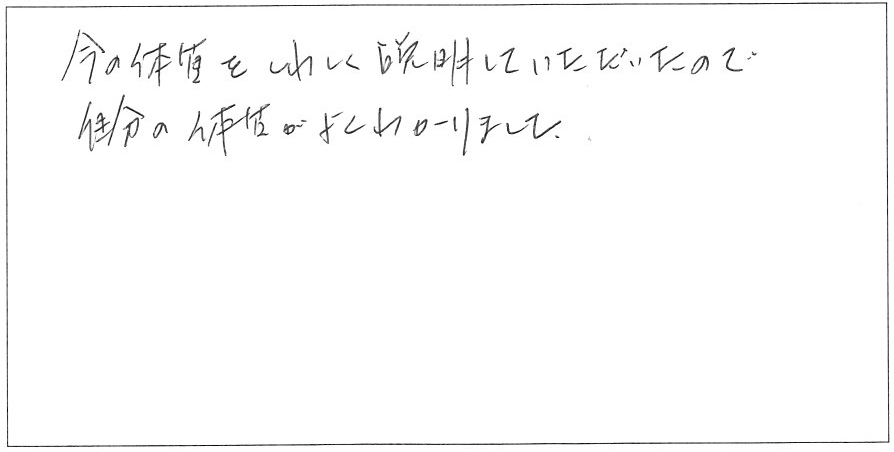 今の体質をくわしく説明していただいたので
自分の体質がよくわかりました。